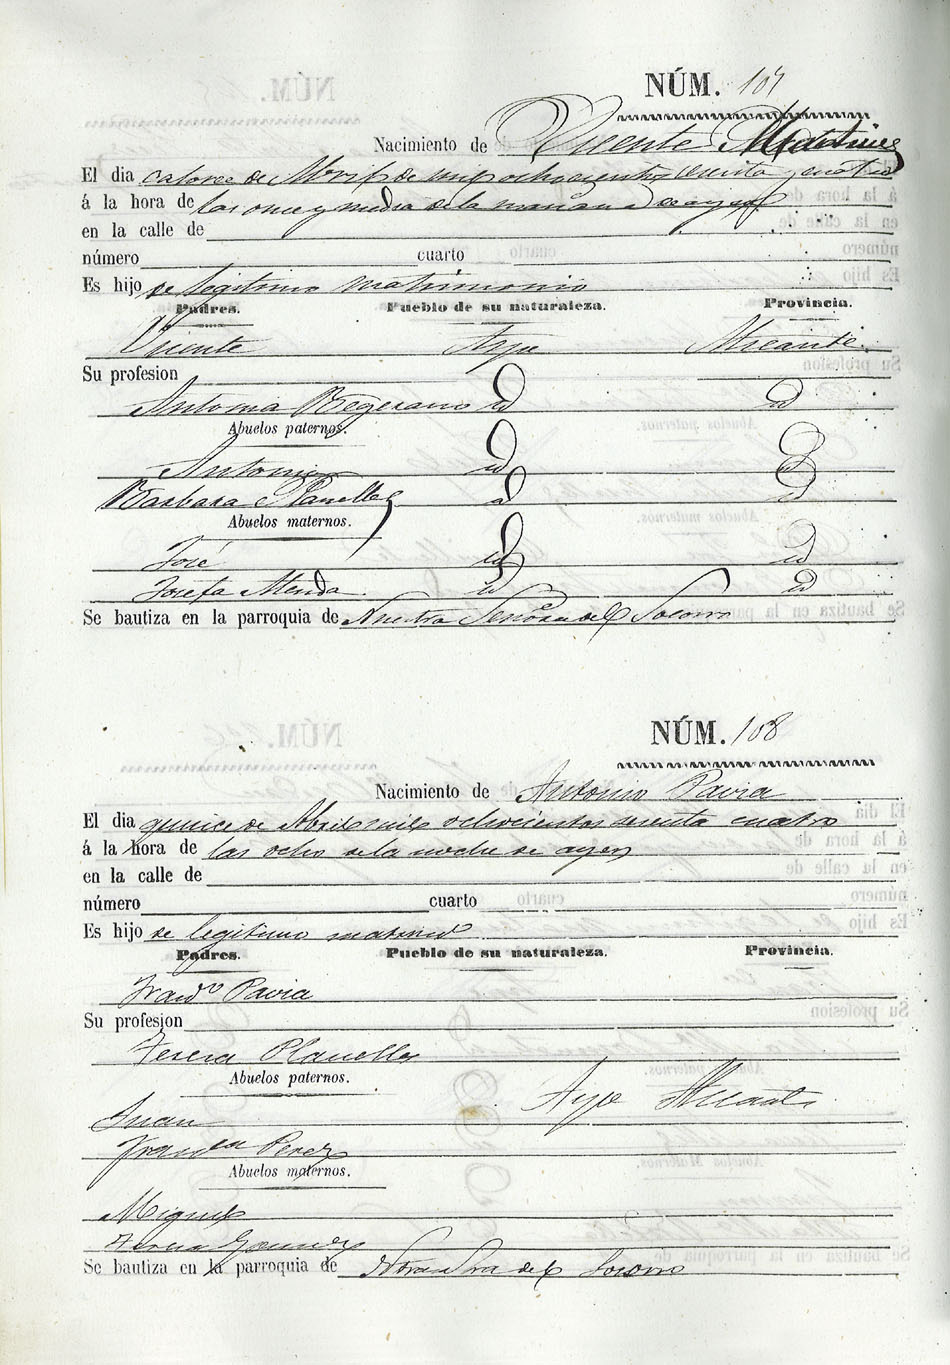 NÚM. 107
Nacimiento de Vicente Martinez
El dia catorce de Abril de mil ochocientos setenta y cuatro
á la hora de las once y media de la mañana de ayer
en la calle de
número cuarto
Es hijo de legitimo matrimonio
Padres. Pueblo de su naturaleza. Provincia.
Vicente Aspe Alicante
Su profesion
Antonia Begerano id id
Abuelos paternos.
Antonio id id
Barbara Planelles id id
Abuelos maternos.
José id id
Josefa id id
Se bautiza en la parroquia de Nuestra Señora del Socorro
NÚM. 108
Nacimiento de Antonio Pavia
El dia quince de Abril mil ochocientos setenta cuatro
á la hora de las ocho de la noche de ayer
en la calle de
número cuarto
Es hijo de legitimo matrimo
Padres. Pueblo de su naturaleza. Provincia.
Franco Pavia
Su profesion
Teresa Planelles
Abuelos paternos.
Juan Aspe Alicante
Franca Perez
Abuelos maternos.
Miguel
Se bautiza en la parroquia de Ntra Sra del Socorro